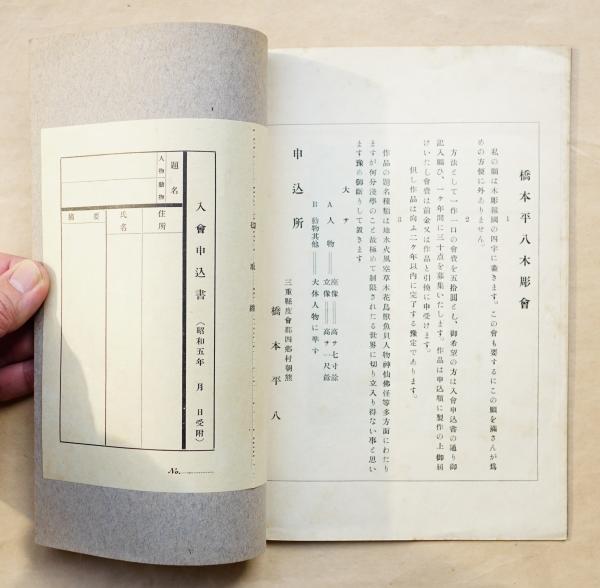 橋本平八木彫會
1
私の願は木彫報國の四字に盡きます。この會も要するにこの願を滿さんが爲
めの方便に外ありません。
2
方法として一作一口の會費を五拾圓とし、御希望の方は入會申込書の通り御
記入願ひ、一ヶ年間に三十点を募集いたします。作品は申込順に製作の上御届
けいたし會費は前金又は作品と引換に申受けます。
但し作品は向ふ二ヶ年以内に完了する豫定であります。
3
作品の題名種類は地水火風空草木花鳥獸魚貝人物神仙佛怪等多方面にわたり
ますが何分淺學のこと故極めて制限されたる世界に切り立入り得ない事と思い
ます豫め御斷りして置きます
大サ
A 人物 座像 高サ七寸餘
立像 高サ一尺餘
B 動物其他 大体人物に準ず
申込所
三重縣度會郡四郷村朝熊
橋本平八
切取線
入會申込書 (昭和五年 月 日受附)
題名
人物
動物
住所
氏名
摘要
No.